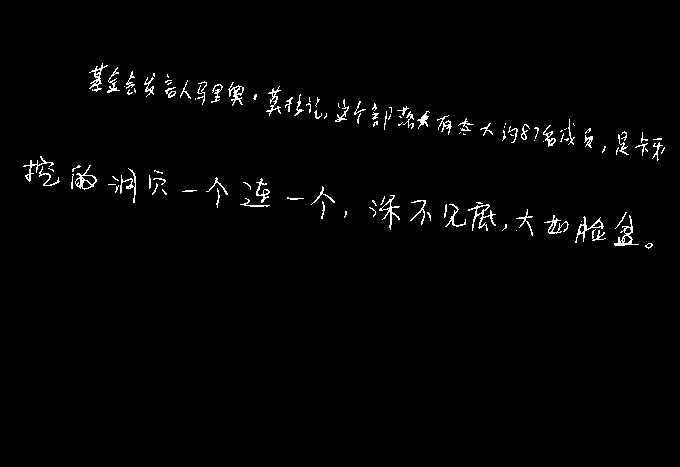 基金会发言人马里奥·莫拉说,这个部落共有大约87名成员,是卡牙
挖的洞穴一个连一个,深不见底,大如脸盆。